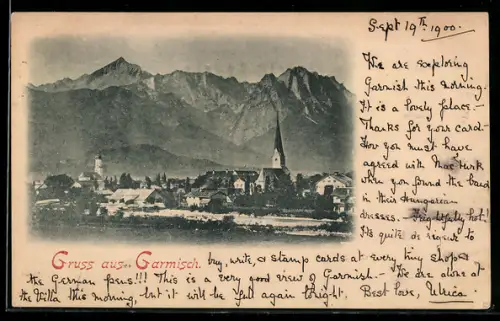 Sept 19th 1900.
We are exploring
Garmish this morning.
It is a lovely place.-
Thanks for your card-
How you must have
agreed with Mac
when you found the band
in their Hungarian
dresses.- Frightfully hot!
Its quite de rigeur to
Gruss aus Garmisch.
buy, write, & stamp cards at every tiny shop &
the German fans!!! This is a very good view of Garmish.- We are alone at
the Villa this morning, but it will be full again tonight. Best love, Ulrica.